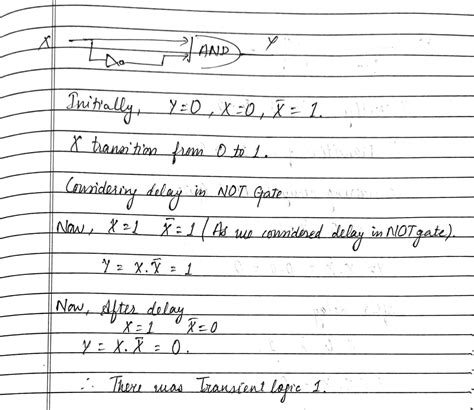 X AND Y
Initially, Y=0, X=0, X̅ = 1.
X transition from 0 to 1.
Considering delay in NOT Gate
Now, X=1 X̅=1 (As we considered delay in NOT gate).
Y = X.X̅ = 1
Now, After delay
X=1 X̅=0
Y = X.X̅ = 0.
∴ There was Transient logic 1.